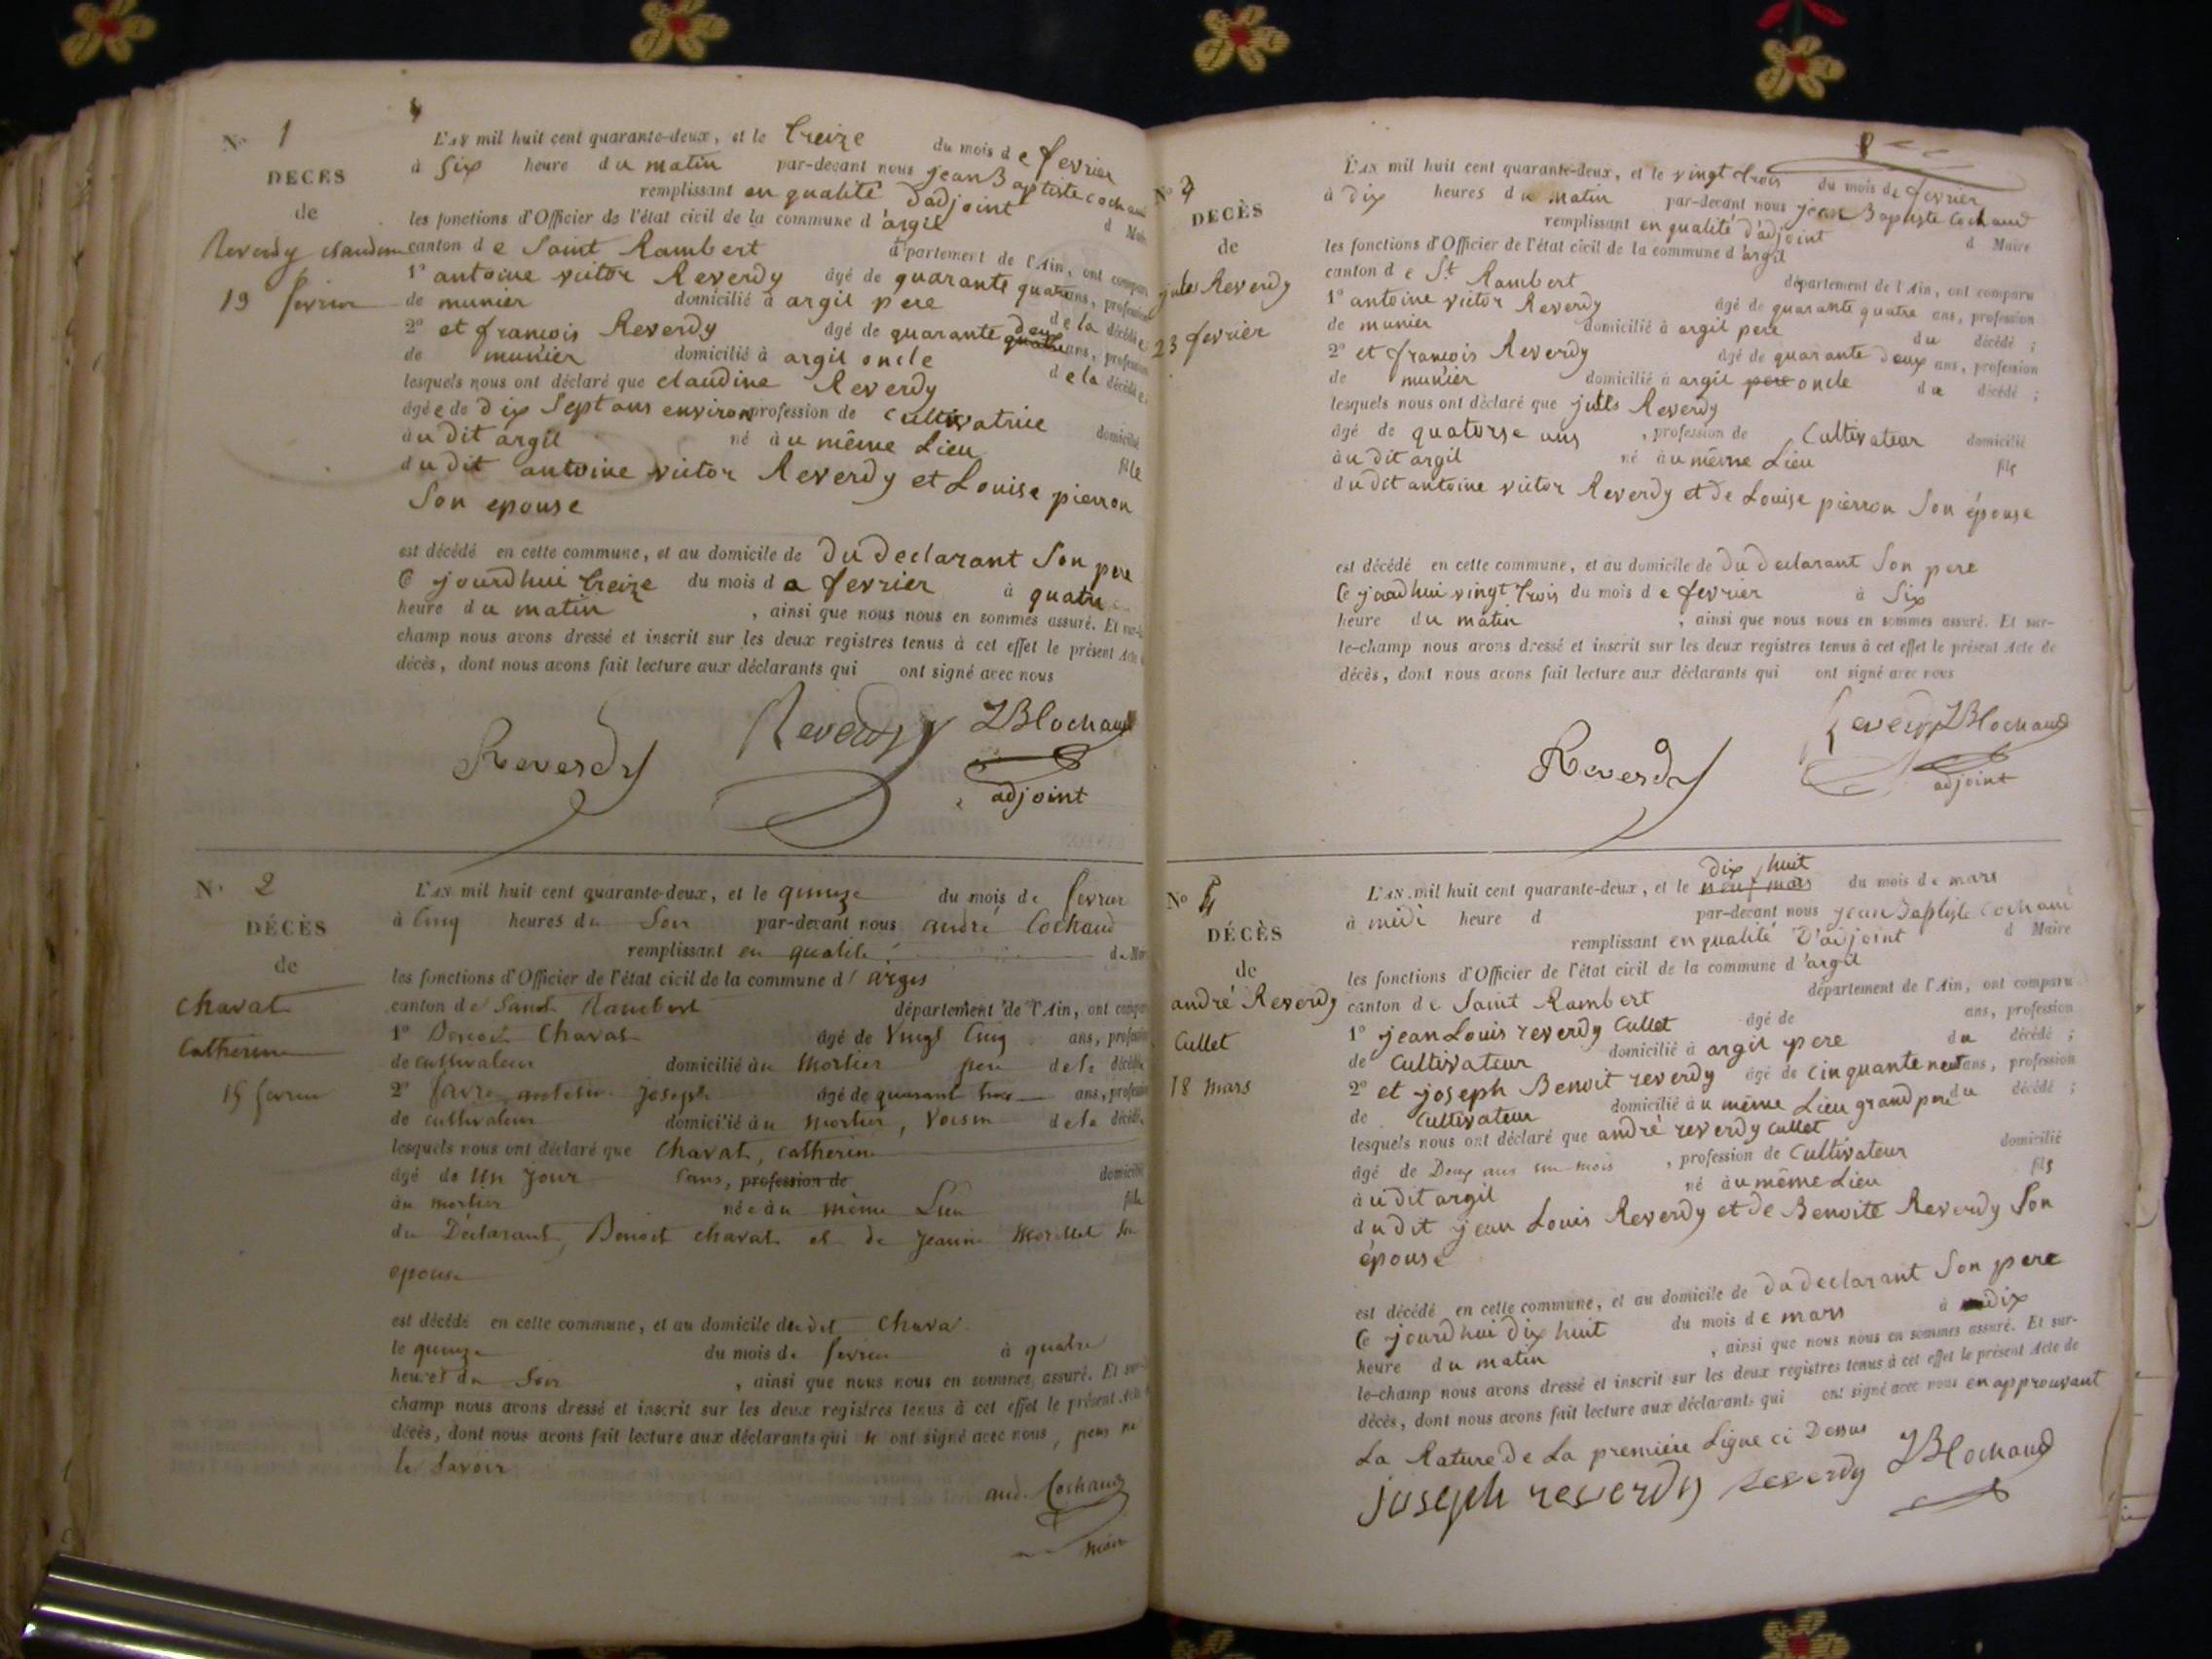 N° 1
DÉCÈS
de
Reverdy claudine
13 fevrier
L'AN mil huit cent quarante-deux, et le treize du mois de fevrier
à six heure du matin par-devant nous jean Baptiste cochaud
remplissant en qualité d'adjoint d Maire
les fonctions d'Officier de l'état civil de la commune d'argil
canton de Saint Rambert département de l'Ain, ont comparu
1° antoine victor Reverdy âgé de quarante quatre ans, profession
de munier domicilié à argil pere de la décédée
2° et françois Reverdy âgé de quarante quatre deux ans, profession
de munier domicilié à argil oncle de la décédée
lesquels nous ont déclaré que claudine Reverdy
âgée de dix Sept ans environ profession de cultivatrice domicilié
à u dit argil né à u même Lieu fille
du dit antoine victor Reverdy et Louise pierron
Son epouse
est décédé en cette commune, et au domicile de du declarant Son pere
Ce jourdhui treize du mois de fevrier à quatre
heure du matin , ainsi que nous nous en sommes assuré. Et sur-le
champ nous avons dressé et inscrit sur les deux registres tenus à cet effet le présent Acte de
décès, dont nous avons fait lecture aux déclarants qui ont signé avec nous
Reverdy Reverdy JB Cochaud
adjoint
N° 2
DÉCÈS
de
Chavat
Catherine
15 fevrier
L'AN mil huit cent quarante-deux, et le quinze du mois de fevrier
à Cinq heures du Soir par-devant nous andré Cochaud
remplissant en qualité de Maire
les fonctions d'Officier de l'état civil de la commune d'argis
canton de Saint Rambert département de l'Ain, ont comparu
1° Benoit Chavat âgé de Vingt Cinq ans, profession
de cultivateur domicilié au Mortier pere de la décédée
2° favre joseph âgé de quarante trois ans, profession
de cultivateur domicilié au Mortier, Voisin de la décédée
lesquels nous ont déclaré que Chavat, Catherine
âgé de Un Jour Sans, profession de domicilié
au mortier née au même Lieu fille
du Déclarant, Benoit chavat et de Jeanne Son
epouse
est décédé en cette commune, et au domicile du dit Chavat
le quinze du mois de fevrier à quatre
heures du Soir , ainsi que nous nous en sommes assuré. Et sur-le
champ nous avons dressé et inscrit sur les deux registres tenus à cet effet le présent Acte de
décès, dont nous avons fait lecture aux déclarants qui n' ont signé avec nous, pour ne
le Savoir
and. Cochaud
Maire
8
N° 3
DÉCÈS
de
jules Reverdy
23 fevrier
L'AN mil huit cent quarante-deux, et le vingt trois du mois de fevrier
à dix heures du matin par-devant nous jean Baptiste Cochaud
remplissant en qualité d'adjoint d Maire
les fonctions d'Officier de l'état civil de la commune d'argil
canton de St Rambert département de l'Ain, ont comparu
1° antoine victor Reverdy âgé de quarante quatre ans, profession
de munier domicilié à argil pere du décédé ;
2° et françois Reverdy âgé de quarante deux ans, profession
de munier domicilié à argil pere oncle du décédé ;
lesquels nous ont déclaré que jules Reverdy
âgé de quatorse ans , profession de Cultivateur domicilié
à u dit argil né à u même Lieu fils
du dit antoine victor Reverdy et de Louise pierron Son épouse
est décédé en cette commune, et au domicile de du declarant Son pere
Ce jourdhui vingt trois du mois de fevrier à Six
heure du matin , ainsi que nous nous en sommes assuré. Et sur-
le-champ nous avons dressé et inscrit sur les deux registres tenus à cet effet le présent Acte de
décès, dont nous avons fait lecture aux déclarants qui ont signé avec nous
Reverdy Reverdy JB Cochaud
adjoint
N° 4
DÉCÈS
de
andré Reverdy
Cullet
18 mars
dix huit
L'AN mil huit cent quarante-deux, et le neuf mars du mois de mars
à midi heure d par-devant nous jean Baptiste Cochaud
remplissant en qualité d'adjoint d Maire
les fonctions d'Officier de l'état civil de la commune d'argil
canton de Saint Rambert département de l'Ain, ont comparu
1° jean Louis reverdy Cullet âgé de ans, profession
de Cultivateur domicilié à argil pere du décédé ;
2° et joseph Benoit reverdy âgé de cinquante neuf ans, profession
de Cultivateur domicilié à u même Lieu grand pere du décédé ;
lesquels nous ont déclaré que andré reverdy cullet
âgé de Deux ans un mois , profession de Cultivateur domicilié
à u dit argil né à u même Lieu fils
du dit jean Louis Reverdy et de Benoite Reverdy Son
épouse
est décédé en cette commune, et au domicile de du declarant Son pere
Ce jourd'hui dix huit du mois de mars à dix
heure du matin , ainsi que nous nous en sommes assuré. Et sur-
le-champ nous avons dressé et inscrit sur les deux registres tenus à cet effet le présent Acte de
décès, dont nous avons fait lecture aux déclarants qui ont signé avec nous en approuvant
La Rature de La première Ligne ci Dessus
joseph reverdy reverdy JB Cochaud